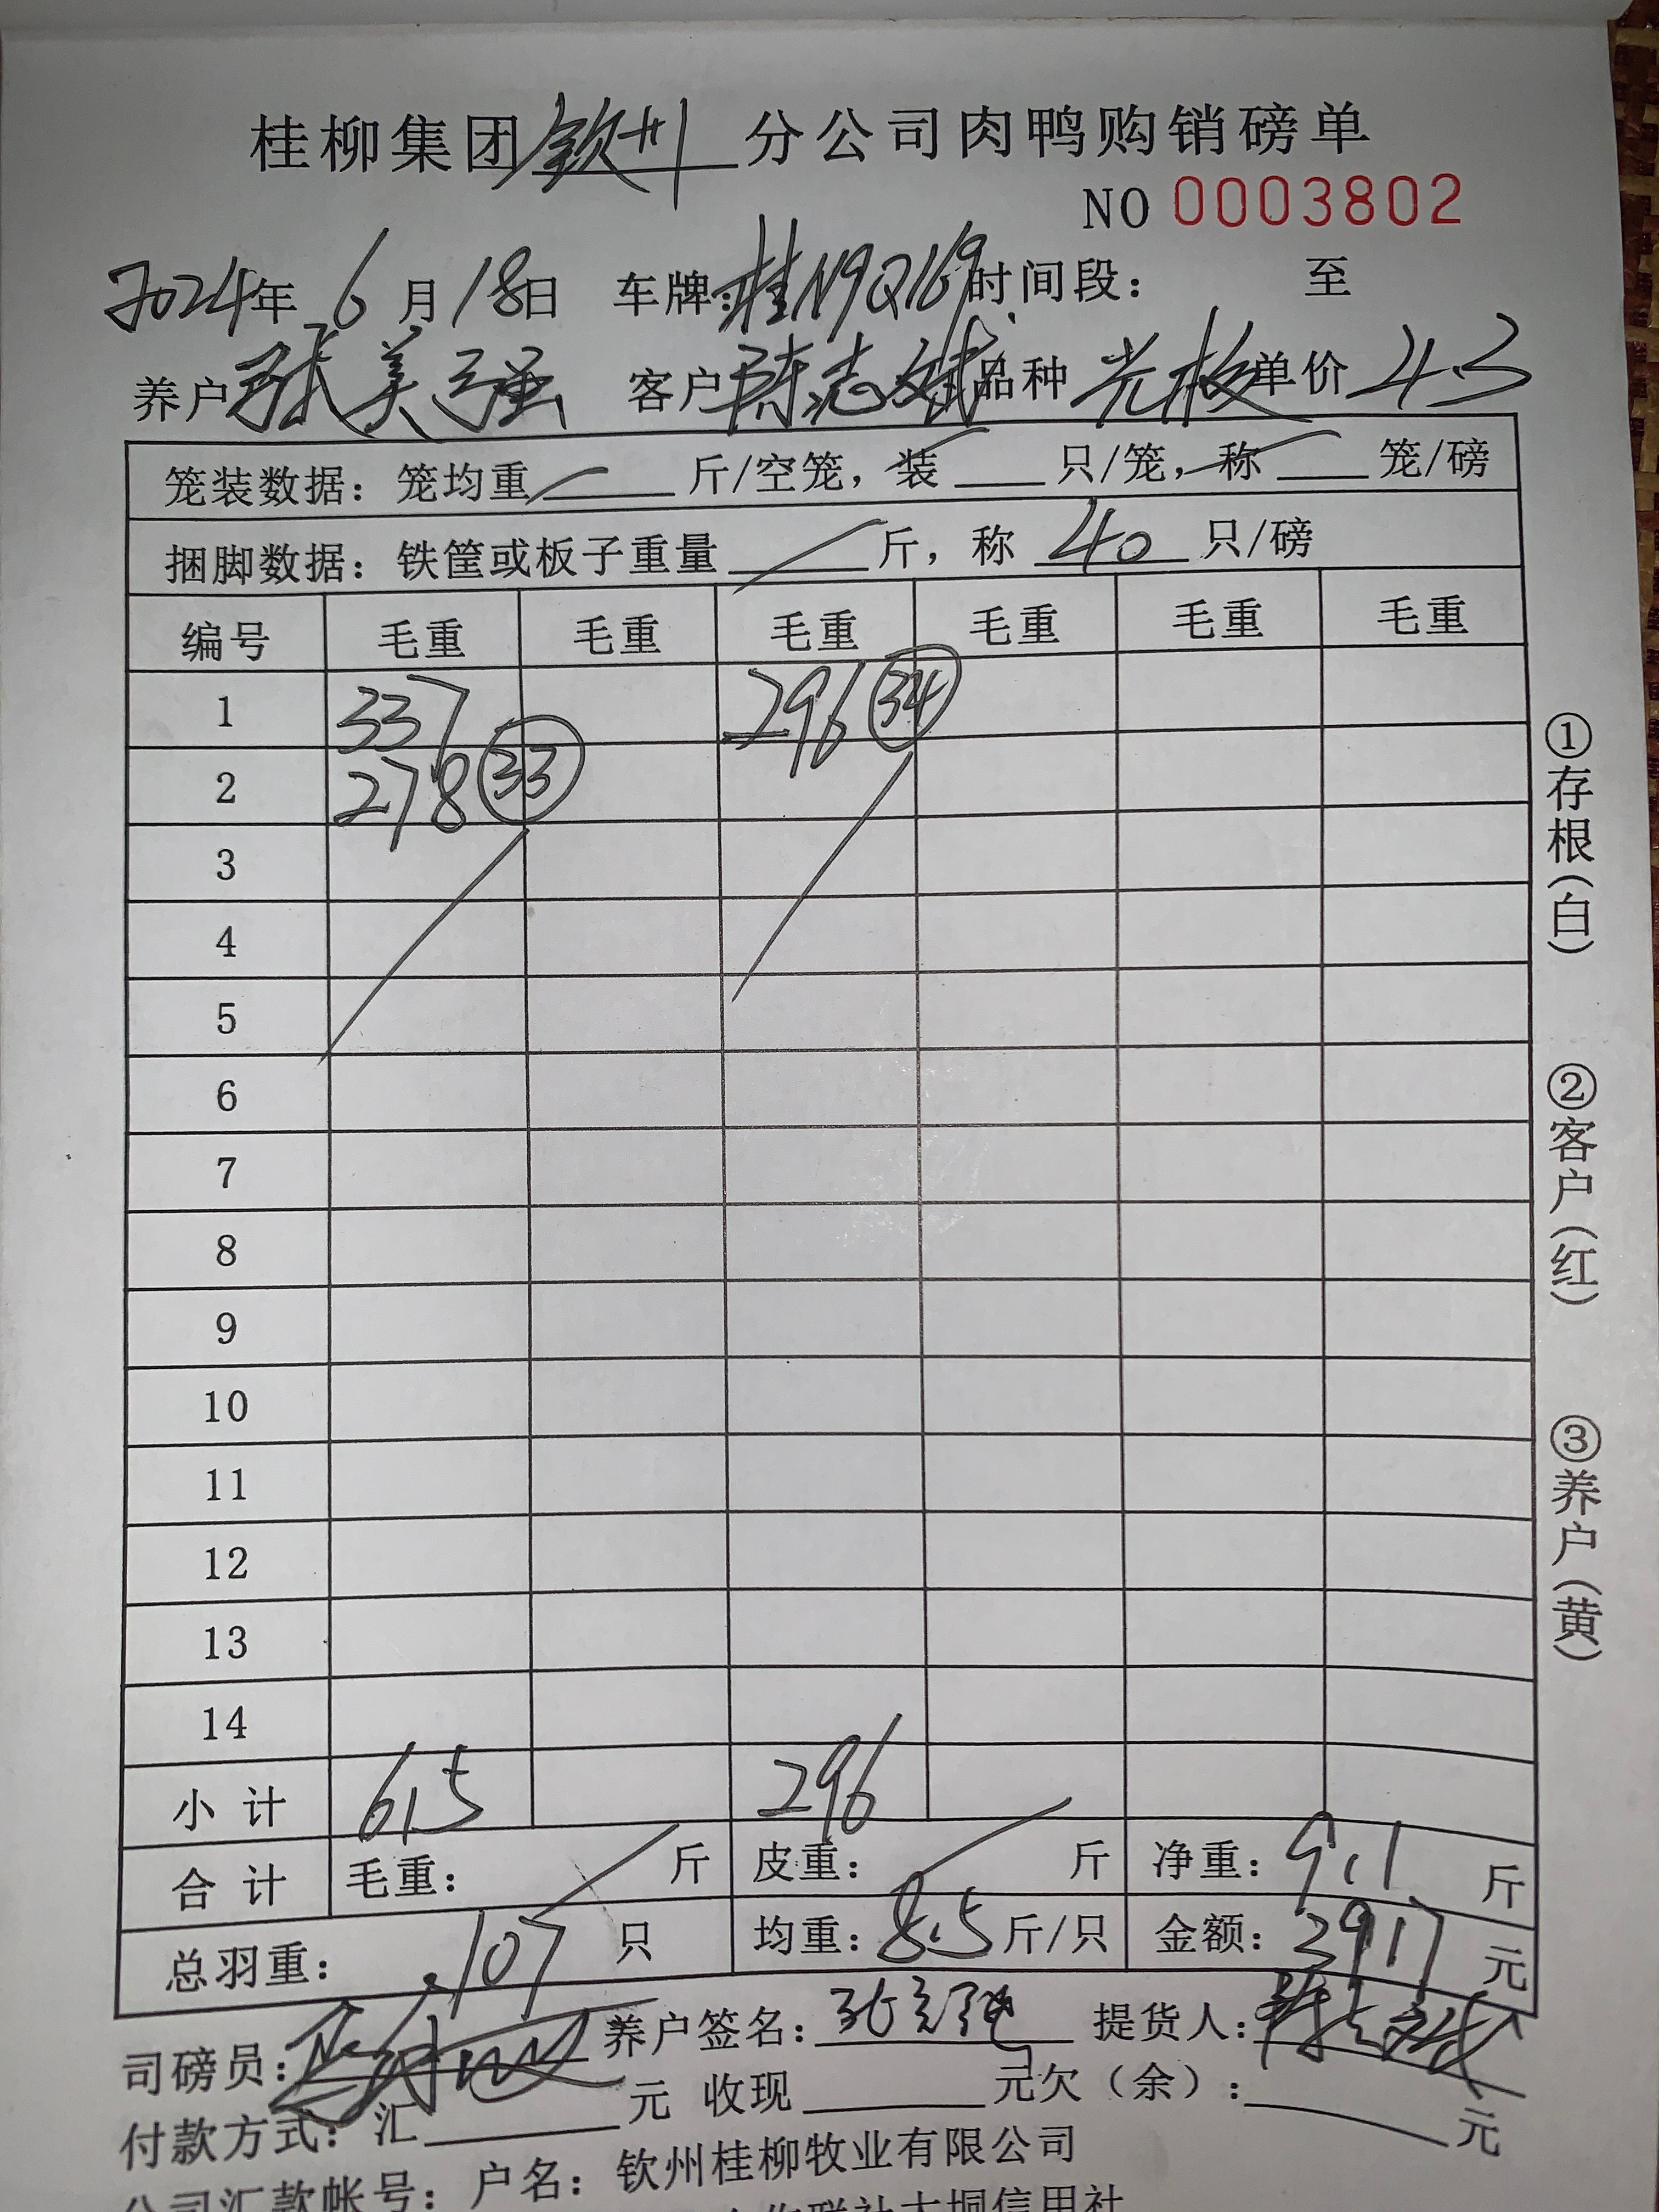 桂柳集团钦州分公司肉鸭购销磅单
NO 0003802
2024年 6月18日 车牌:桂N9Q169 时间段: 至
养户 张美强 客户 陈志斌 品种 光板 单价 4.3
笼装数据: 笼均重 斤/空笼, 装 只/笼, 称 笼/磅
捆脚数据: 铁筐或板子重量 斤, 称 40 只/磅
编号 毛重 毛重 毛重 毛重 毛重 毛重
1 337 296 34
2 278 33
3
4
5
6
7
8
9
10
11
12
13
14
小计 615 296
合计 毛重: 斤 皮重: 斤 净重: 911 斤
总羽重: 107 只 均重: 8.5 斤/只 金额: 3917 元
司磅员: 养户签名: 提货人:
付款方式: 汇 元 收现 元欠(余): 元
公司汇款帐号: 户名: 钦州桂柳牧业有限公司
①存根(白)
②客户(红)
③养户(黄)